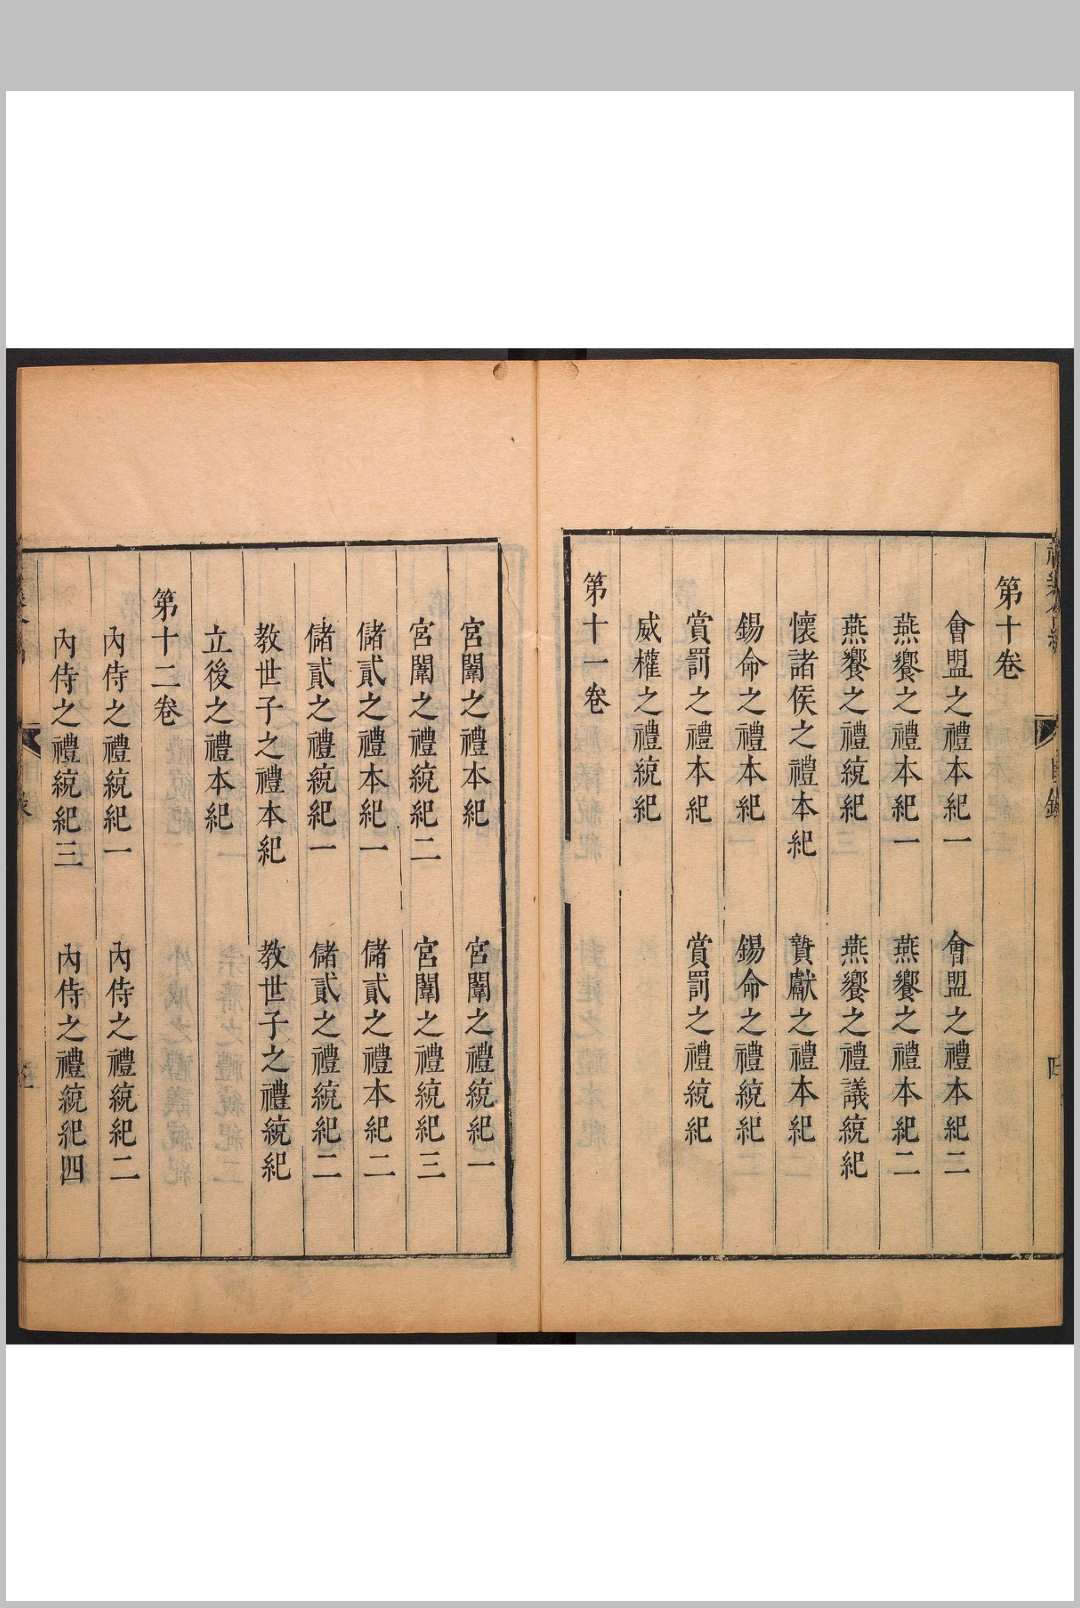 第十卷
會盟之禮本紀一　會盟之禮本紀二
燕饗之禮本紀一　燕饗之禮本紀二
燕饗之禮統紀　燕饗之禮議統紀
懷諸侯之禮本紀　贄獻之禮本紀
錫命之禮本紀　錫命之禮統紀
賞罰之禮本紀　賞罰之禮統紀
威權之禮統紀
第十一卷
宮闈之禮本紀　宮闈之禮統紀一
宮闈之禮統紀二　宮闈之禮統紀三
儲貳之禮本紀一　儲貳之禮本紀二
儲貳之禮統紀一　儲貳之禮統紀二
教世子之禮本紀　教世子之禮統紀
立後之禮本紀
第十二卷
內侍之禮統紀一　內侍之禮統紀二
內侍之禮統紀三　內侍之禮統紀四